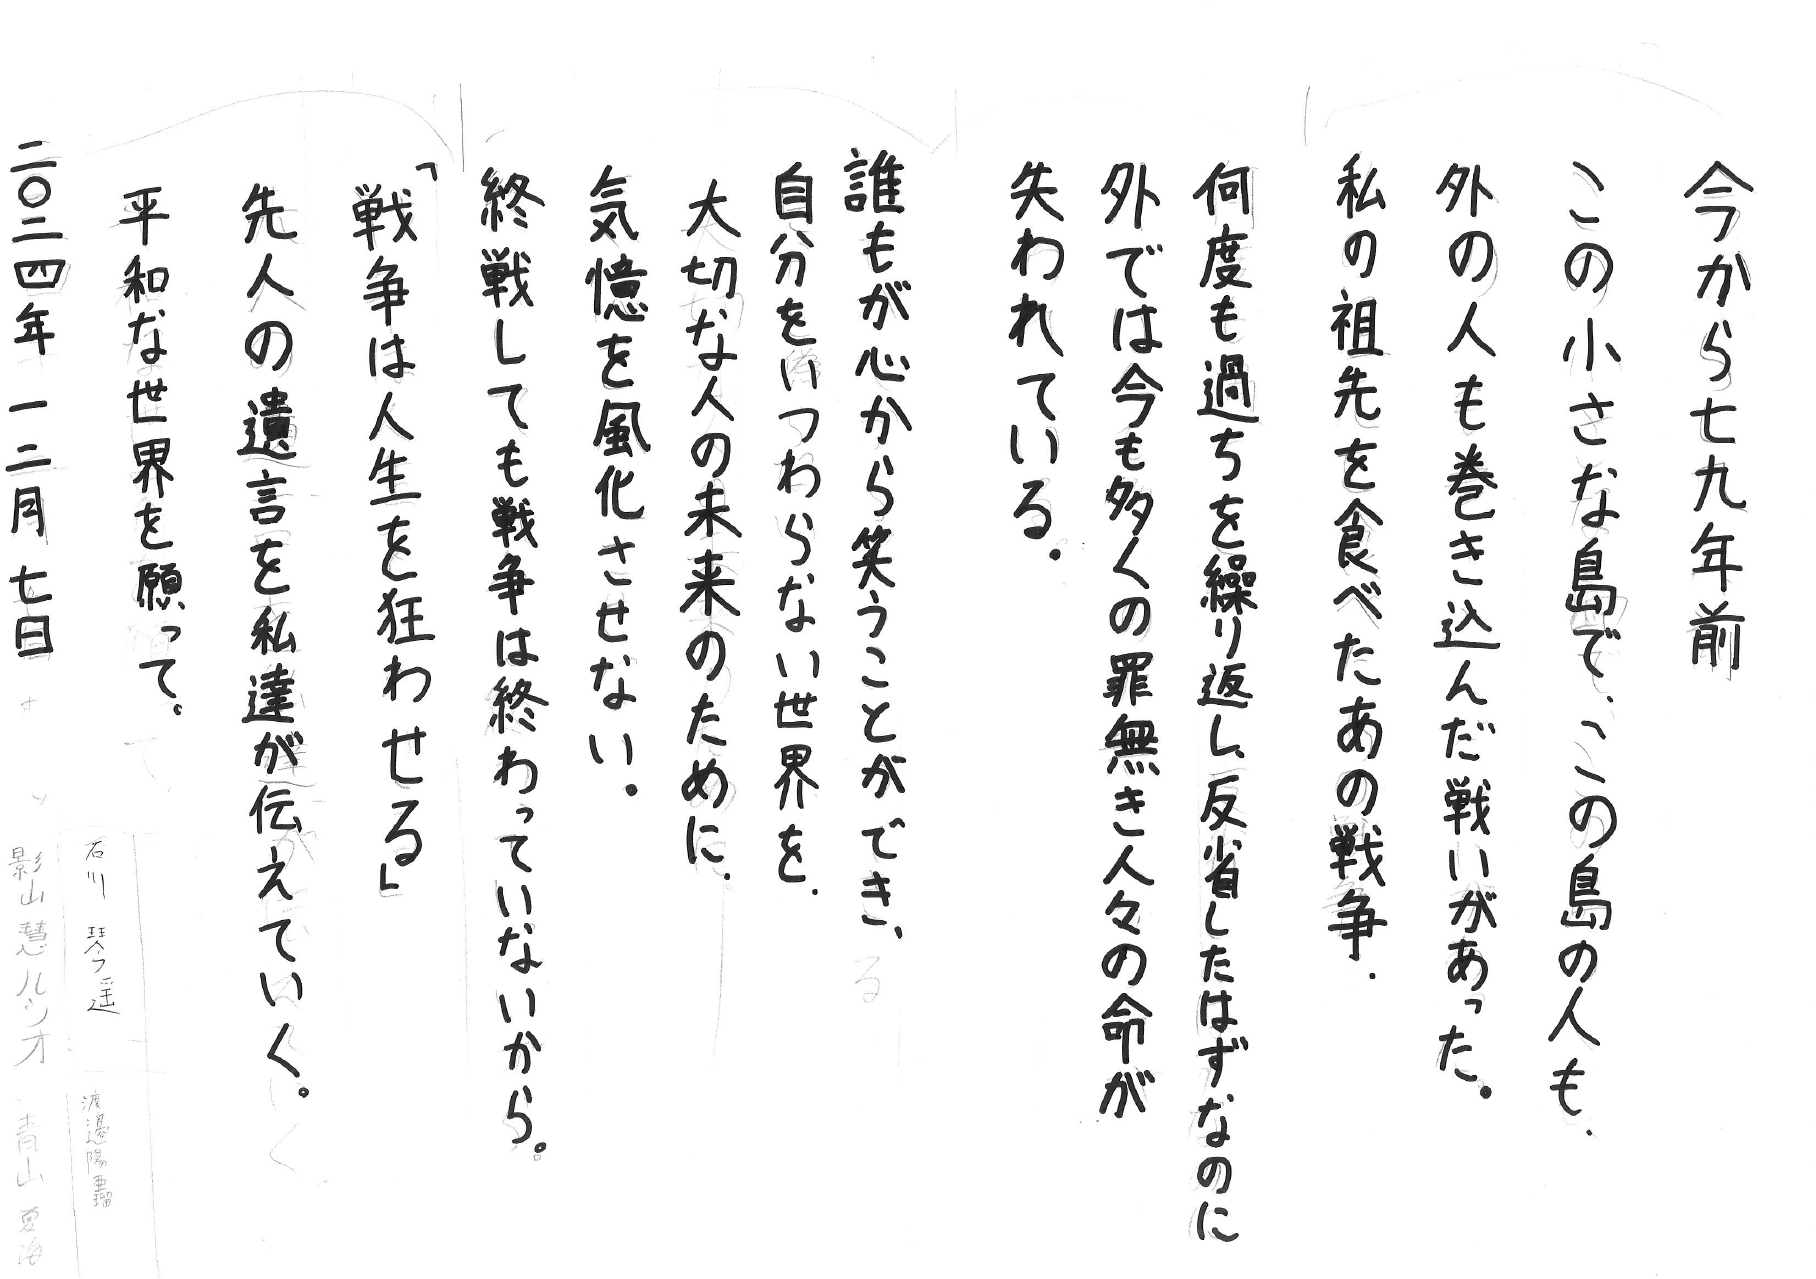 今から七九年前
この小さな島で、この島の人も、
外の人も巻き込んだ戦いがあった。
私の祖先を食べたあの戦争、
何度も過ちを繰り返し、反省したはずなのに
外では今も多くの罪無き人々の命が
失われている。
誰もが心から笑うことができ、
自分をいつわらない世界を、
大切な人の未来のために、
気憶を風化させない。
終戦しても戦争は終わっていないから。
「戦争は人生を狂わせる」
先人の遺言を私達が伝えていく。
平和な世界を願って。
二〇二四年 一二月 七日
石川 琴遥
渡邉陽亜瑠
影山 慧ルシオ
青山 夏海